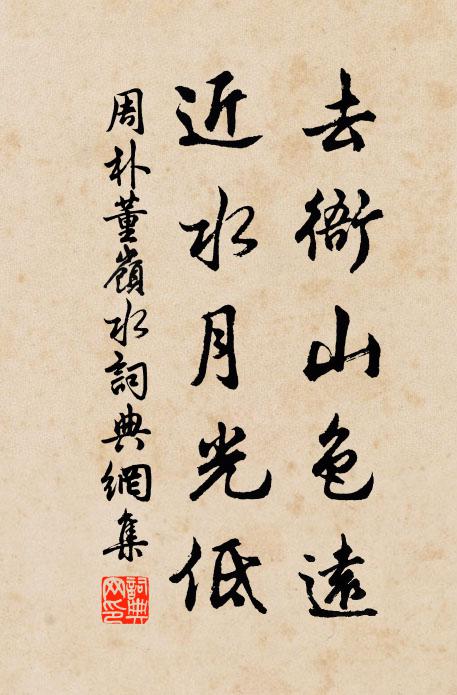 去衙山色遠
近水月光低
周朴董嶺水詞典網集
詞典網印